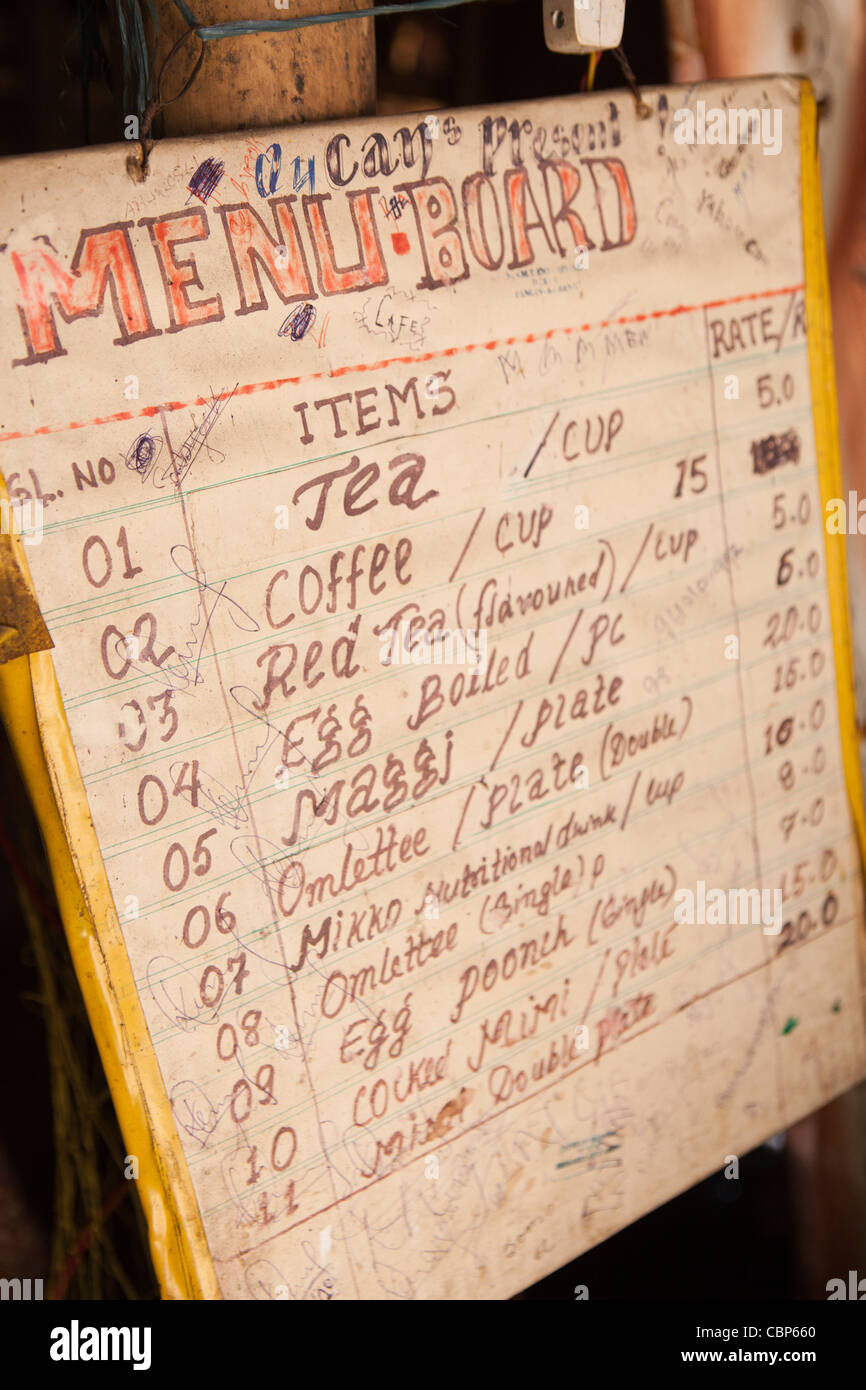 Oy Cay's Present !
MENU . BOARD
CAFE
SL. NO ITEMS RATE/R
01 Tea / CUP 5.0
02 Coffee / CUP 15
03 Red Tea (flavoured) / CUP 5.0
04 Egg Boiled / PC 6.0
05 Maggi / Plate 20.0
06 Omlettee / Plate (Double) 15.0
07 Mikko Nutritional drink / Cup 10.0
08 Omlettee (Single) P 8.0
09 Egg Poonch (Single) 7.0
10 Cocked Mimi / Plate 15.0
11 Mimi Double Plate 20.0
alamy
Image ID: CBP660
www.alamy.com